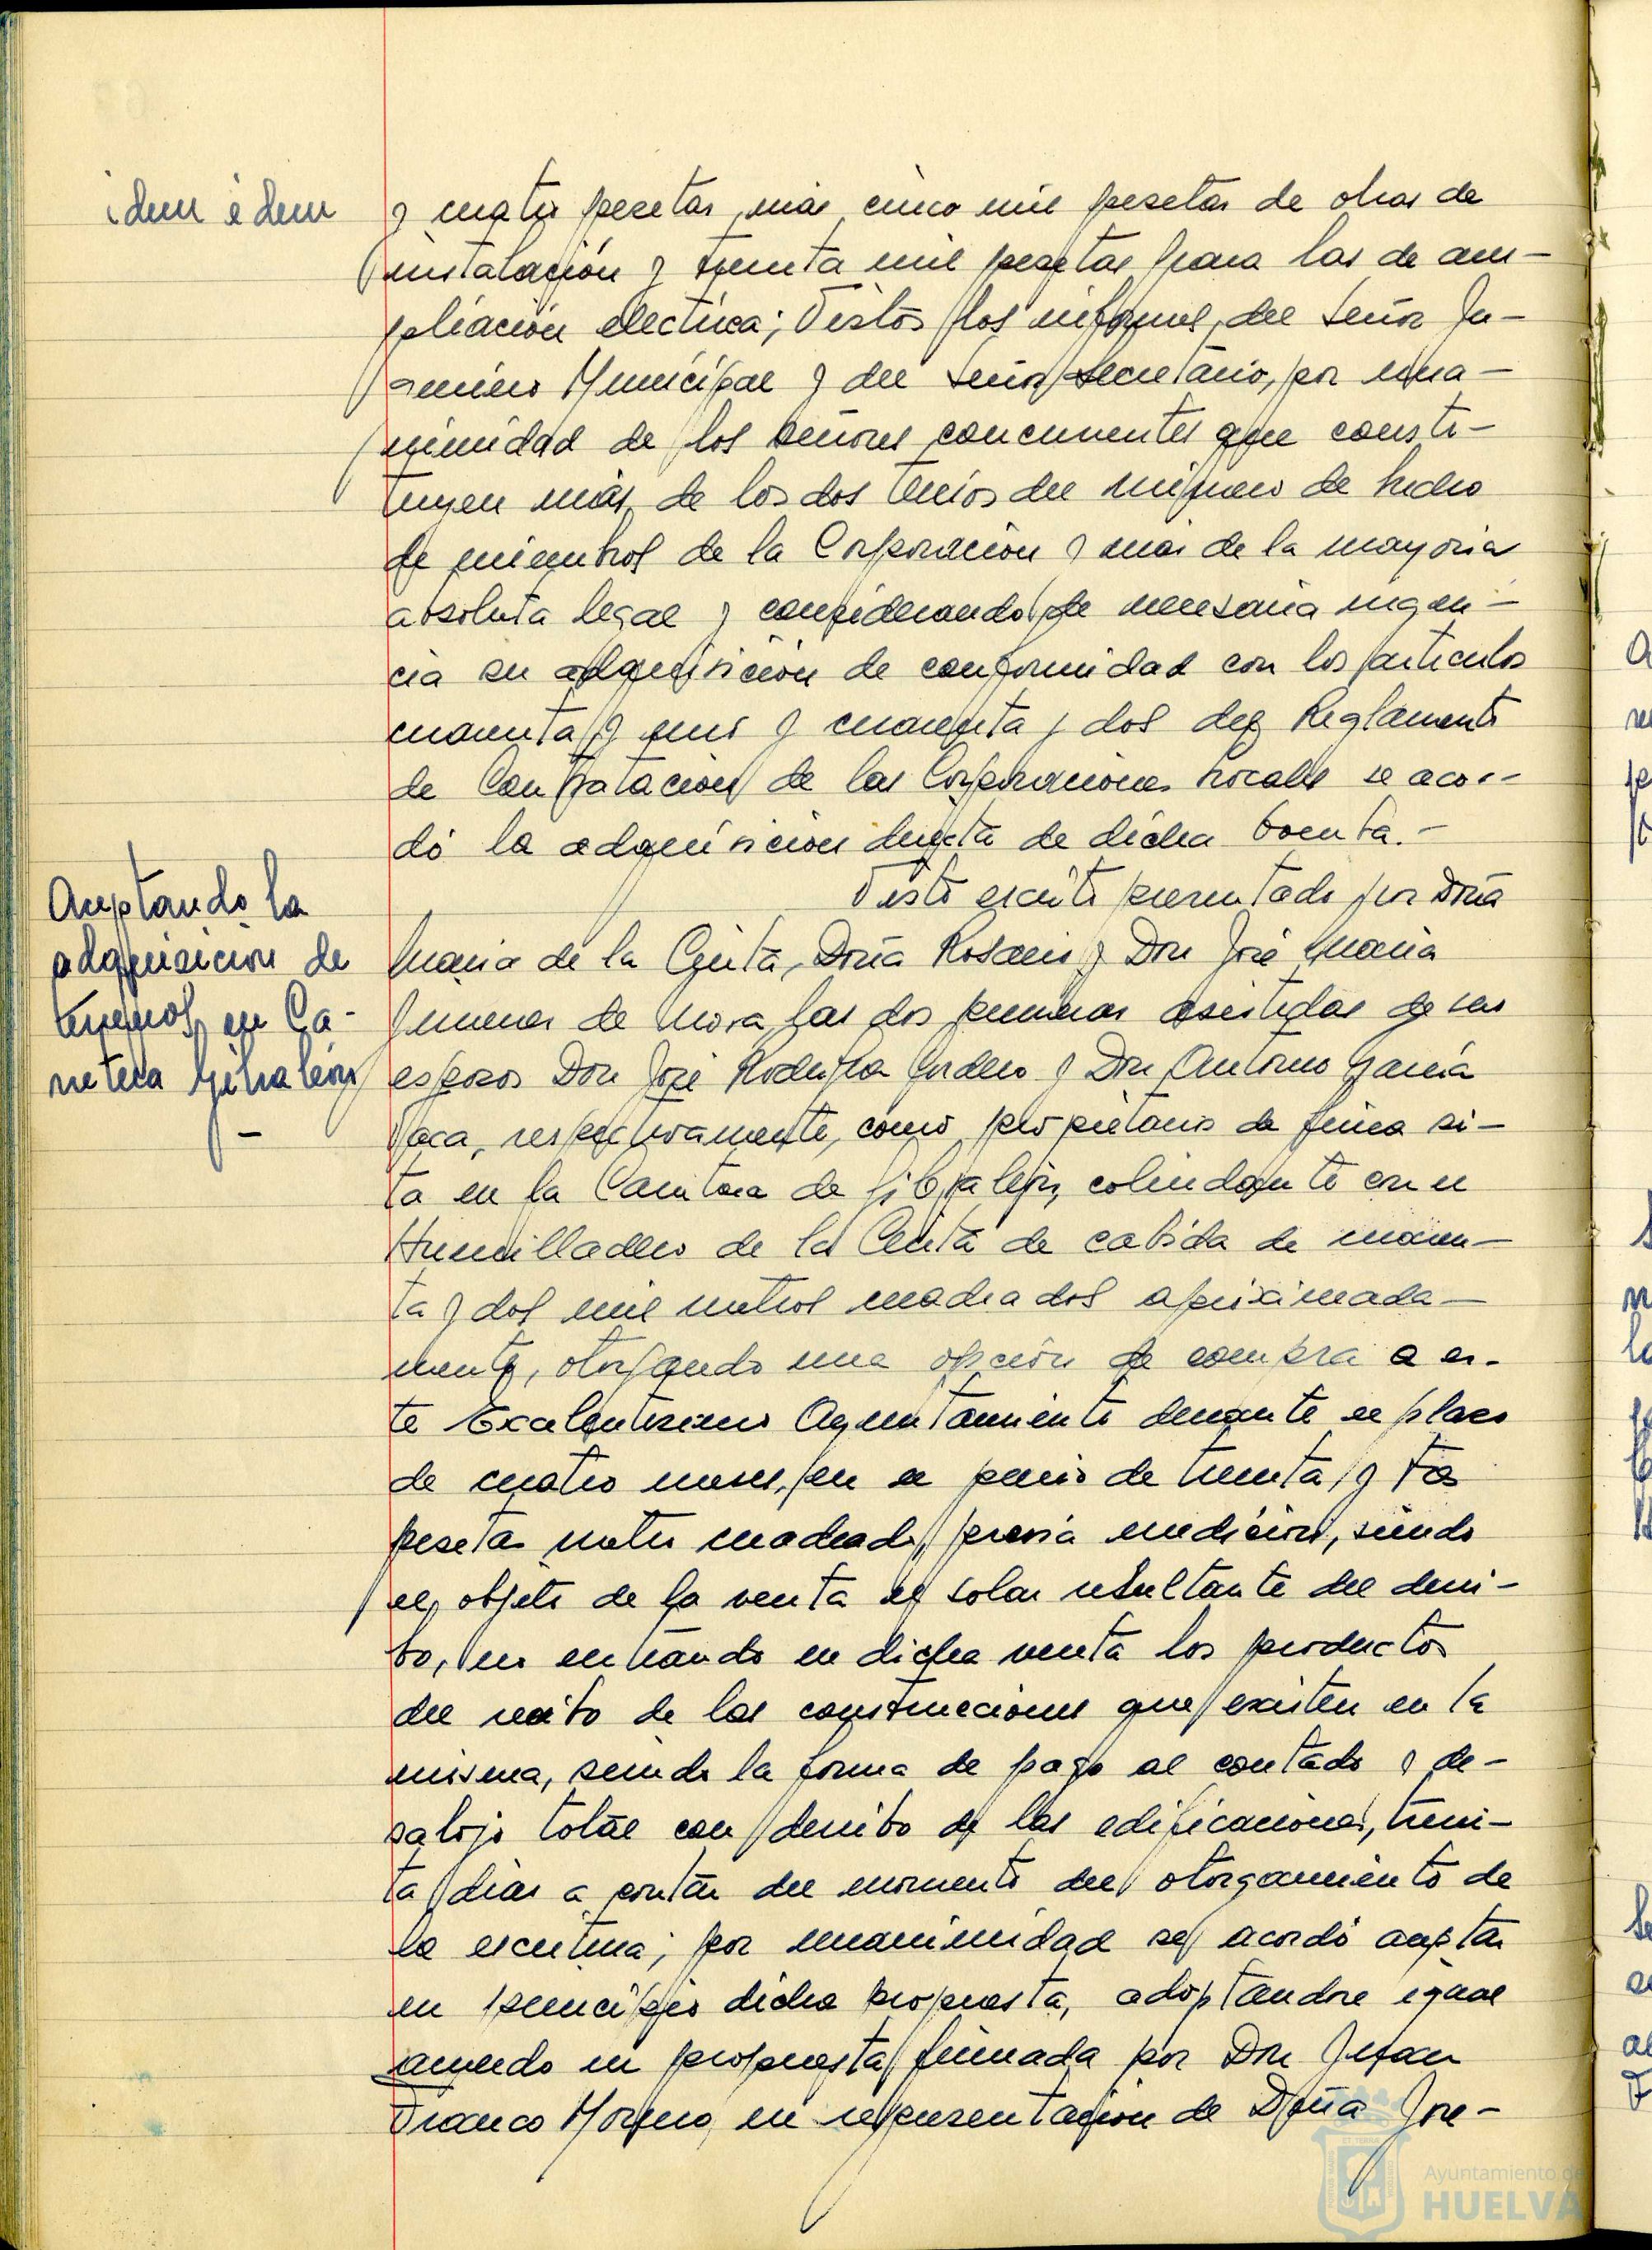 idem idem
y cuatro pesetas, más cinco mil pesetas de obras de
instalación y treinta mil pesetas para las de am-
pliación electrica; Vistos los informes, del Señor In-
geniero Municipal y del Señor Secretario, por una-
nimidad de los señores concurrentes que consti-
tuyen más de los dos tercios del número de hecho
de miembros de la Corporación y más de la mayoria
absoluta legal y considerando de necesaria urgen-
cia su adquisición de conformidad con los articulos
cuarenta y uno y cuarenta y dos del Reglamento
de Contratación de las Corporaciones Locales se acor-
dó la adquisicion directa de dicha bomba.-
Aceptando la
adquisicion de
terrenos en Ca-
rretera Gibraleón
-
Visto escrito presentado por Doña
Maria de la Cinta, Doña Rosario y Don José Maria
Jimenez de Mora, las dos primeras asistidas de sus
esposos Don José Cordero y Don Antonio García
Vaca, respectivamente, como propietarios de finca si-
ta en la Carretera de Gibraleón, colindante con el
Humilladero de la Cinta de cabida de cuaren-
ta y dos mil metros cuadrados aproximada-
mente, otorgando una opción de compra a es-
te Excelentisimo Ayuntamiento durante el plazo
de cuatro meses, en el precio de treinta y tres
pesetas metro cuadrado, previa medición, siendo
el objeto de la venta el solar resultante del derri-
bo, no entrando en dicha venta los productos
del derribo de las construcciones que existen en la
misma, siendo la forma de pago al contado y de-
salojo total con derribo de las edificaciones, trein-
ta dias a contar del momento del otorgamiento de
la escritura; por unanimidad se acordó aceptar
en principio dicha propuesta, adoptandose igual
acuerdo en propuesta firmada por Don Juan
Franco Moreno en representación de Doña Jose-
Ayuntamiento de
HUELVA